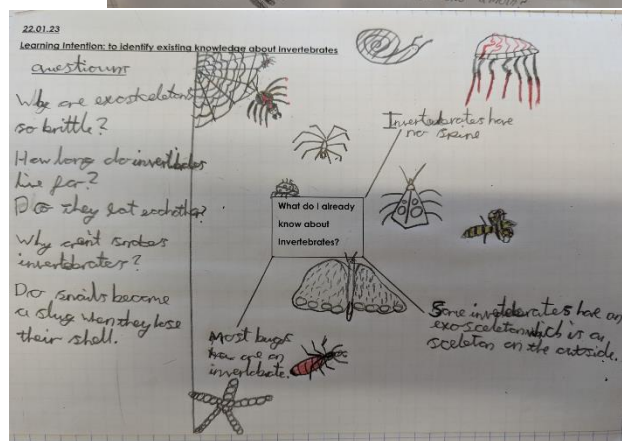 22.01.23
Learning Intention: to identify existing knowledge about invertebrates
questions
Why are exosceletons
so brittle?
How long do invertibrates
live for?
Do they eat eachother?
Why aren't snakes
invertebrates?
Do snails become
a slug when they lose
their shell.
Invertebrates have
no spine
What do I already
know about
Invertebrates?
Most bugs
are an
invertebrate.
Some invertebrates have an
exosceleton which is a
sceleton on the outside.